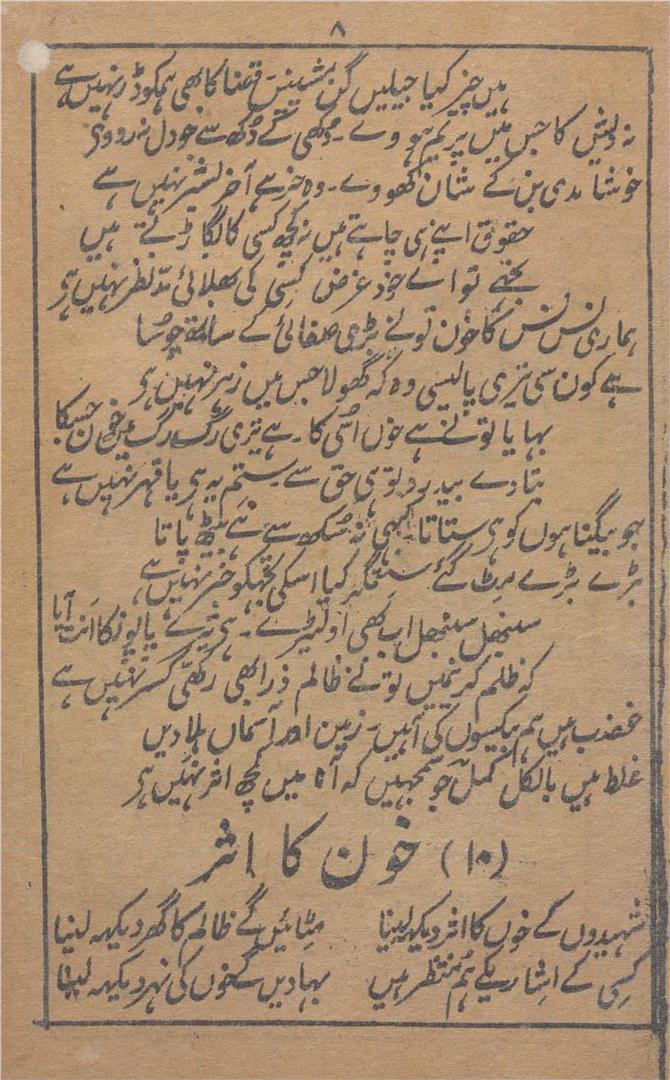 ۸
ہیں چیز کیا جیلیں گن مشینیں قضا کا بھی ہمکو ڈر نہیں ہے
نہ دیش کا جس میں پریم ہووے۔ دُکھی کے دُکھ سے جو دل نہ رووے
خوشامدی بن کے شان کھووے۔ وہ خر ہے آخر بشر نہیں ہے
حقوق اپنے ہی چاہتے ہیں نہ کچھ کسی کا بگاڑتے ہیں
تجھے تو اے خود غرض کسی کی بھلائی مدّنظر نہیں ہے
ہماری نس نس کا خون تونے بڑی صفائی کے ساتھ چوسا
ہے کون سی تیری پالیسی وہ کہ گھولا جس میں زہر نہیں ہے
بہایا تونے ہے خوں اُسی کا۔ ہے تیری رگ رگ میں خون جسکا
بتا دے بیدرد تو ہی حق سے یہ ستم یہ ہے یا قہر نہیں ہے
جو بیگناہوں کو ہے ستاتا کبھی نہ سکھ سے ہے بیٹھ پاتا
بڑے بڑے مٹ گئے ستمگر کیا اسکی تجھکو خبر نہیں ہے
سنبھل سنبھل اب بھی او لٹیرے۔ ہے تیرے پاپوں کا انت آیا
کہ ظلم کرنیمیں تونے ظالم ذرا بھی رکھّی کسر نہیں ہے
غضب ہیں ہم بیکسوں کی آہیں۔ زمین اور آسماں ہلادیں
غلط ہیں بالکل کمل جو سمجہیں کہ آہ میں کچھ اثر نہیں ہے
(۱۰) خون کا اثر
شہیدوں کے خوں کا اثر دیکھہ لینا مٹائیں گے ظالم کا گھر دیکھہ لینا
کسی کے اشاریکے ہم منتظر ہیں بہادیں گے خوں کی نہر دیکھہ لینا